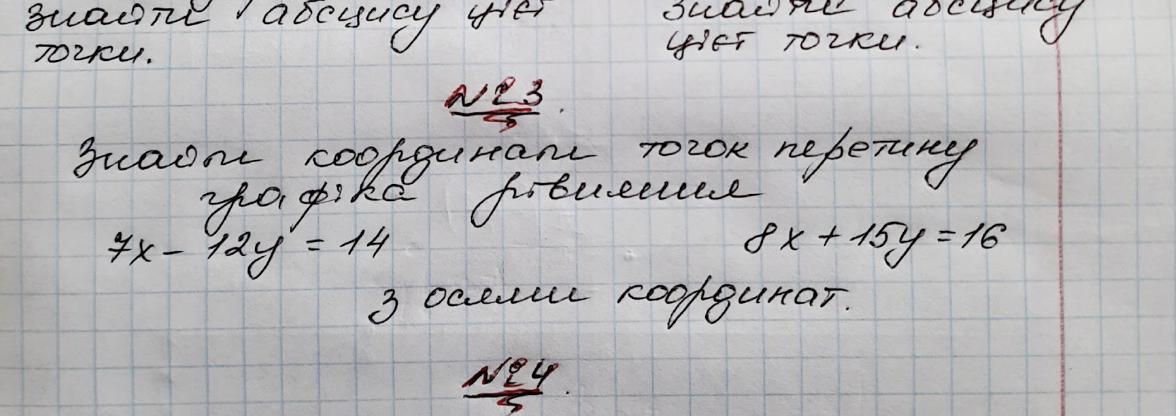 знайти абсцису цієї
точки.
знайти абсцису
цієї точки.
№3.
Знайти координати точок перетину
графіка рівняння
7x - 12y = 14
8x + 15y = 16
з осями координат.
№4.